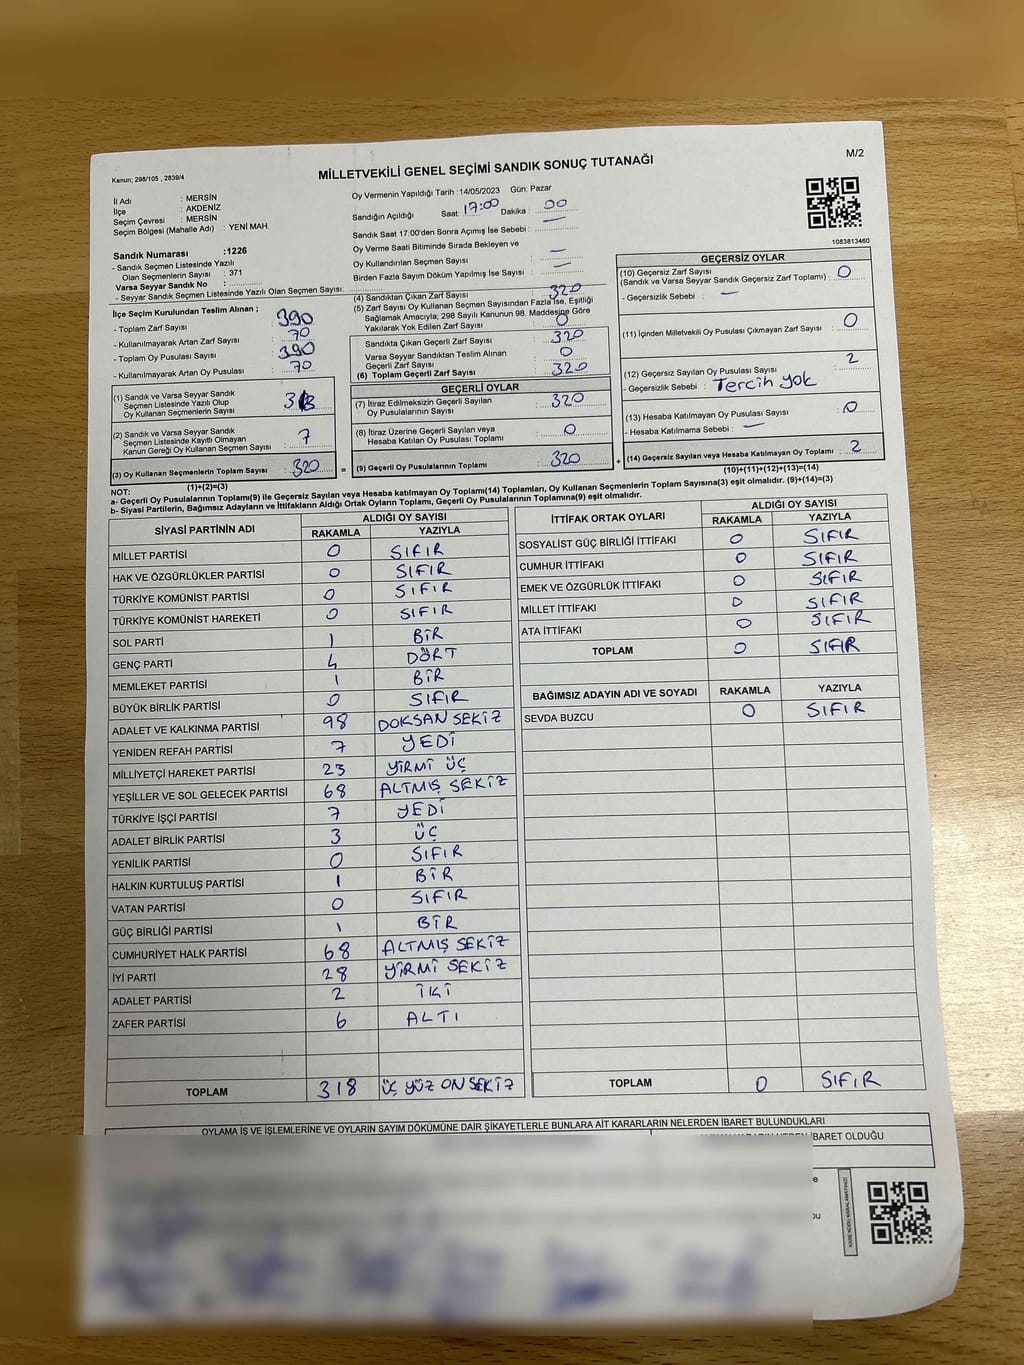 M/2
MİLLETVEKİLİ GENEL SEÇİMİ SANDIK SONUÇ TUTANAĞI
Kanun; 298/105 , 2839/4
İl Adı : MERSİN
İlçe : AKDENİZ
Seçim Çevresi : MERSİN
Seçim Bölgesi (Mahalle Adı) : YENİ MAH.
Sandık Numarası :1226
- Sandık Seçmen Listesinde Yazılı
Olan Seçmenlerin Sayısı : 371
Varsa Seyyar Sandık No :
- Seyyar Sandık Seçmen Listesinde Yazılı Olan Seçmen Sayısı:
Oy Vermenin Yapıldığı Tarih :14/05/2023 Gün: Pazar
Sandığın Açıldığı Saat: 17:00 Dakika : 00
Sandık Saat 17:00'den Sonra Açılmış İse Sebebi : —
Oy Verme Saati Bitiminde Sırada Bekleyen ve
Oy Kullandırılan Seçmen Sayısı : —
Birden Fazla Sayım Döküm Yapılmış İse Sayısı : —
1083813460
İlçe Seçim Kurulundan Teslim Alınan ;
- Toplam Zarf Sayısı : 390
- Kullanılmayarak Artan Zarf Sayısı : 70
- Toplam Oy Pusulası Sayısı : 390
- Kullanılmayarak Artan Oy Pusulası : 70
(1) Sandık ve Varsa Seyyar Sandık
Seçmen Listesinde Yazılı Olup
Oy Kullanan Seçmenlerin Sayısı
(2) Sandık ve Varsa Seyyar Sandık
Seçmen Listesinde Kayıtlı Olmayan
Kanun Gereği Oy Kullanan Seçmen Sayısı 7
(3) Oy Kullanan Seçmenlerin Toplam Sayısı 320
(1)+(2)=(3)
(4) Sandıktan Çıkan Zarf Sayısı 320
(5) Zarf Sayısı Oy Kullanan Seçmen Sayısından Fazla İse, Eşitliği
Sağlamak Amacıyla; 298 Sayılı Kanunun 98. Maddesine Göre
Yakılarak Yok Edilen Zarf Sayısı 0
Sandıkta Çıkan Geçerli Zarf Sayısı 320
Varsa Seyyar Sandıktan Teslim Alınan
Geçerli Zarf Sayısı 0
(6) Toplam Geçerli Zarf Sayısı 320
GEÇERLİ OYLAR
(7) İtiraz Edilmeksizin Geçerli Sayılan
Oy Pusulalarının Sayısı 320
(8) İtiraz Üzerine Geçerli Sayılan veya
Hesaba Katılan Oy Pusulası Toplamı 0
= (9) Geçerli Oy Pusulalarının Toplamı 320 +
GEÇERSİZ OYLAR
(10) Geçersiz Zarf Sayısı
(Sandık ve Varsa Seyyar Sandık Geçersiz Zarf Toplamı) : 0
- Geçersizlik Sebebi : —
(11) İçinden Milletvekili Oy Pusulası Çıkmayan Zarf Sayısı 0
(12) Geçersiz Sayılan Oy Pusulası Sayısı 2
- Geçersizlik Sebebi : Tercih yok
(13) Hesaba Katılmayan Oy Pusulası Sayısı 0
- Hesaba Katılmama Sebebi : —
(14) Geçersiz Sayılan veya Hesaba Katılmayan Oy Toplamı 2
(10)+(11)+(12)+(13)=(14)
NOT:
a- Geçerli Oy Pusulalarının Toplamı(9) ile Geçersiz Sayılan veya Hesaba katılmayan Oy Toplamı(14) Toplamları, Oy Kullanan Seçmenlerin Toplam Sayısına(3) eşit olmalıdır. (9)+(14)=(3)
b- Siyasi Partilerin, Bağımsız Adayların ve İttifakların Aldığı Ortak Oyların Toplamı, Geçerli Oy Pusulalarının Toplamına(9) eşit olmalıdır.
SİYASİ PARTİNİN ADI ALDIĞI OY SAYISI
RAKAMLA YAZIYLA
MİLLET PARTİSİ 0 SIFIR
HAK VE ÖZGÜRLÜKLER PARTİSİ 0 SIFIR
TÜRKİYE KOMÜNİST PARTİSİ 0 SIFIR
TÜRKİYE KOMÜNİST HAREKETİ 0 SIFIR
SOL PARTİ 1 BİR
GENÇ PARTİ 4 DÖRT
MEMLEKET PARTİSİ 1 BİR
BÜYÜK BİRLİK PARTİSİ 0 SIFIR
ADALET VE KALKINMA PARTİSİ 98 DOKSAN SEKİZ
YENİDEN REFAH PARTİSİ 7 YEDİ
MİLLİYETÇİ HAREKET PARTİSİ 23 YİRMİ ÜÇ
YEŞİLLER VE SOL GELECEK PARTİSİ 68 ALTMIŞ SEKİZ
TÜRKİYE İŞÇİ PARTİSİ 7 YEDİ
ADALET BİRLİK PARTİSİ 3 ÜÇ
YENİLİK PARTİSİ 0 SIFIR
HALKIN KURTULUŞ PARTİSİ 1 BİR
VATAN PARTİSİ 0 SIFIR
GÜÇ BİRLİĞİ PARTİSİ 1 BİR
CUMHURİYET HALK PARTİSİ 68 ALTMIŞ SEKİZ
İYİ PARTİ 28 YİRMİ SEKİZ
ADALET PARTİSİ 2 İKİ
ZAFER PARTİSİ 6 ALTI
TOPLAM 318 ÜÇ YÜZ ON SEKİZ
İTTİFAK ORTAK OYLARI ALDIĞI OY SAYISI
RAKAMLA YAZIYLA
SOSYALİST GÜÇ BİRLİĞİ İTTİFAKI 0 SIFIR
CUMHUR İTTİFAKI 0 SIFIR
EMEK VE ÖZGÜRLÜK İTTİFAKI 0 SIFIR
MİLLET İTTİFAKI 0 SIFIR
ATA İTTİFAKI 0 SIFIR
TOPLAM 0 SIFIR
BAĞIMSIZ ADAYIN ADI VE SOYADI RAKAMLA YAZIYLA
SEVDA BUZCU 0 SIFIR
TOPLAM 0 SIFIR
OYLAMA İŞ VE İŞLEMLERİNE VE OYLARIN SAYIM DÖKÜMÜNE DAİR ŞİKAYETLERLE BUNLARA AİT KARARLARIN NELERDEN İBARET BULUNDUKLARI
İBARET OLDUĞU
KARE KODU KARALAMAYINIZ!